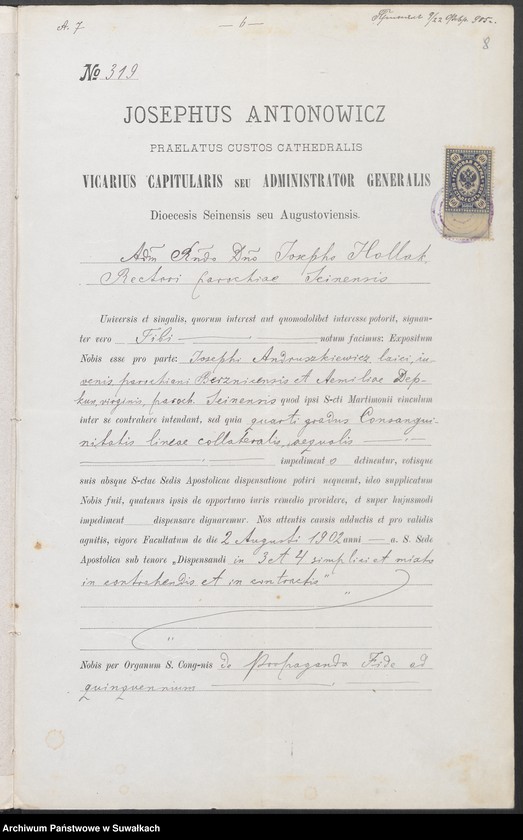 A. 7 — 6 — 9/22 1905.
8
№ 319
JOSEPHUS ANTONOWICZ
PRAELATUS CUSTOS CATHEDRALIS
VICARIUS CAPITULARIS SEU ADMINISTRATOR GENERALIS
Dioecesis Seinensis seu Augustoviensis.
Adm Rndo Dño Josepho Hollak
Rectori parochiae Seinensis
Universis et singulis, quorum interest aut quomodolibet interesse poterit, signan-
ter vero Tibi notum facimus: Expositum
Nobis esse pro parte: Josephi Andruszkiewicz, laici, ju-
venis, parochiani Berznicensis et Aemiliae Dep-
kun, virginis, paroch. Seinensis quod ipsi S-cti Martimonii vinculum
inter se contrahere intendant, sed quia quarti gradus Consangui-
nitatis lineae collateralis, aequalis —
impedimento detinentur, votisque
suis absque S-ctae Sedis Apostolicae dispensatione potiri nequeunt, ideo supplicatum
Nobis fuit, quatenus ipsis de opportuno iuris remedio providere, et super hujusmodi
impediment dispensare dignaremur. Nos attentis causis adductis et pro validis
agnitis, vigore Facultatum de die 2 Augusti 1902 anni — a. S. Sede
Apostolica sub tenore „Dispensandi in 3 et 4 simplici et mixto
in contrahendis et in contractis"
"
"
Nobis per Organum S. Cong-nis de Propaganda Fide ad
quinquennium
Archiwum Państwowe w Suwałkach